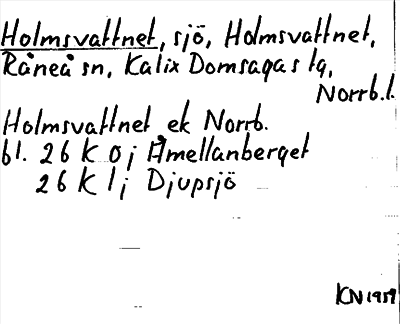 Holmsvattnet, sjö, Holmsvattnet,
Råneå sn, Kalix Domsagas tg,
Norrb.l.
Holmsvattnet ek Norrb.
bl. 26 K 0 j Åmellanberget
26 K 1 j Djupsjö
KN 1959